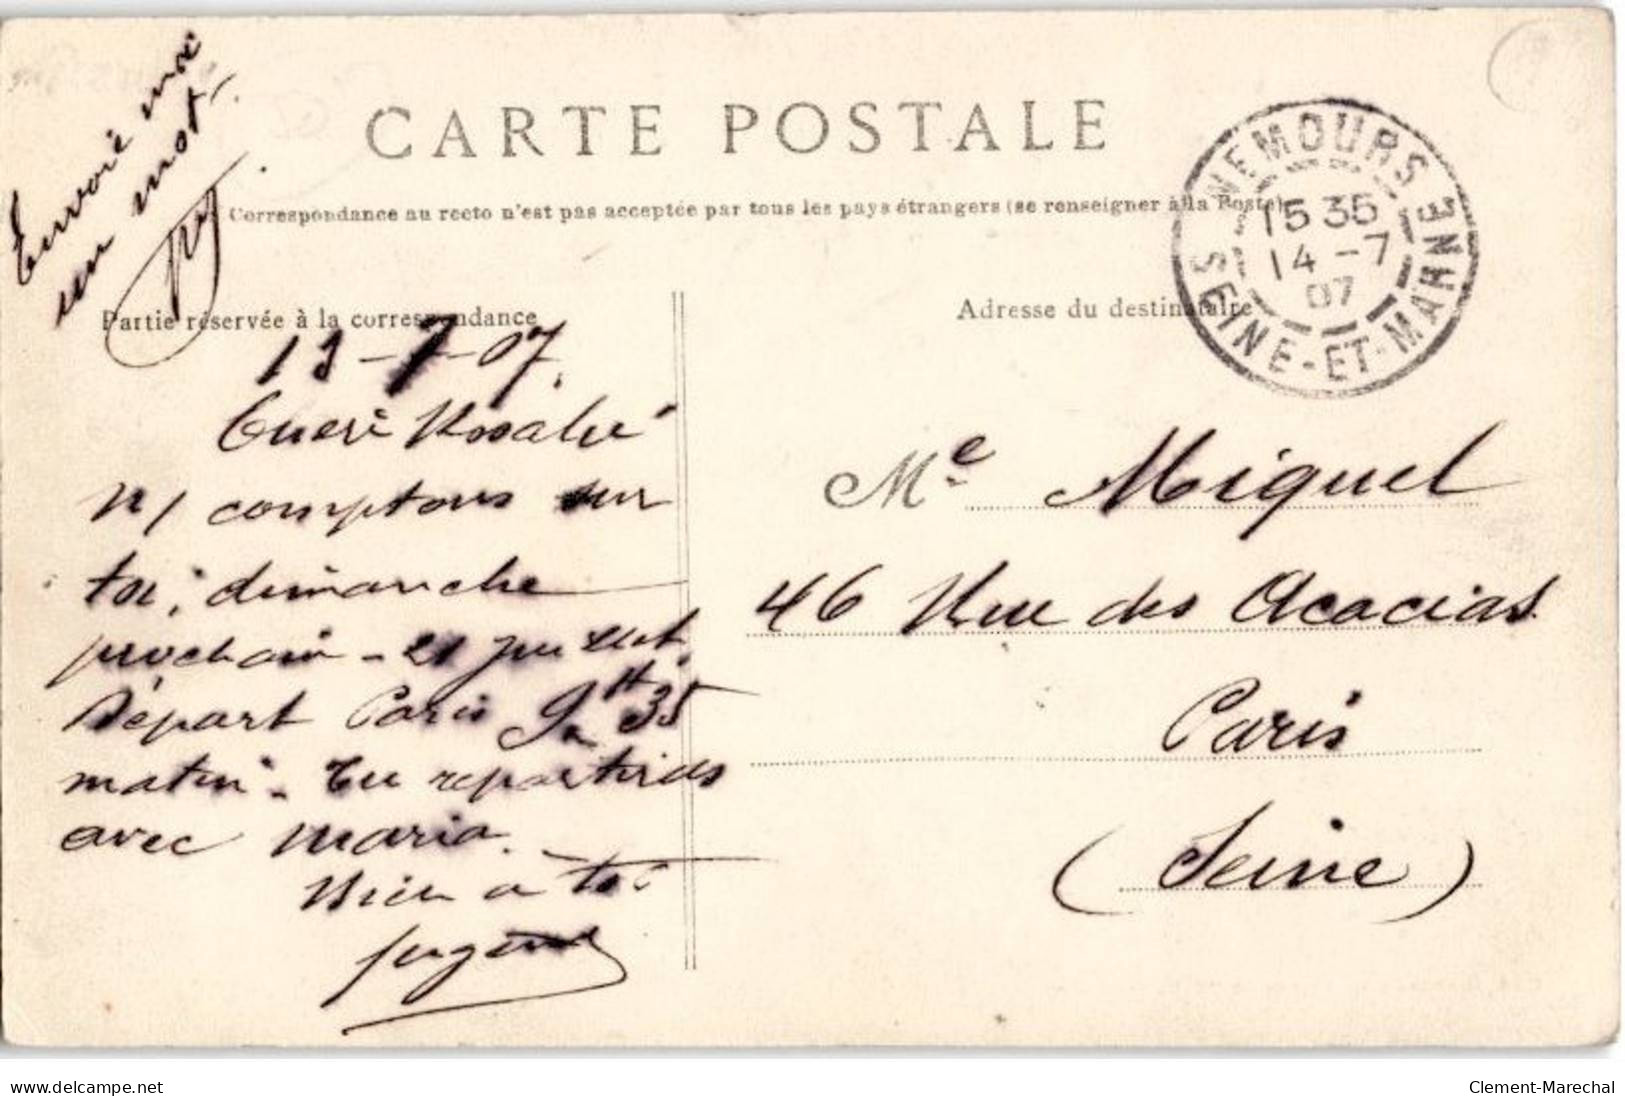 Envoie moi
un mot.
CARTE POSTALE
Correspondance au recto n'est pas acceptée par tous les pays étrangers (se renseigner à la Poste)
NEMOURS
15 35
14 -7
07
SEINE-ET-MARNE
Partie réservée à la correspondance
Adresse du destinataire
13-7-07.
Chère Rosalie
N/ comptons sur
toi, dimanche
prochain - 21 juillet
Départ Paris 9h 35
matin - Tu repartiras
avec Maria.
Bien à toi
Me Miquel
46 Rue des Acacias
Paris
(Seine)
www.delcampe.net
Clement-Marechal